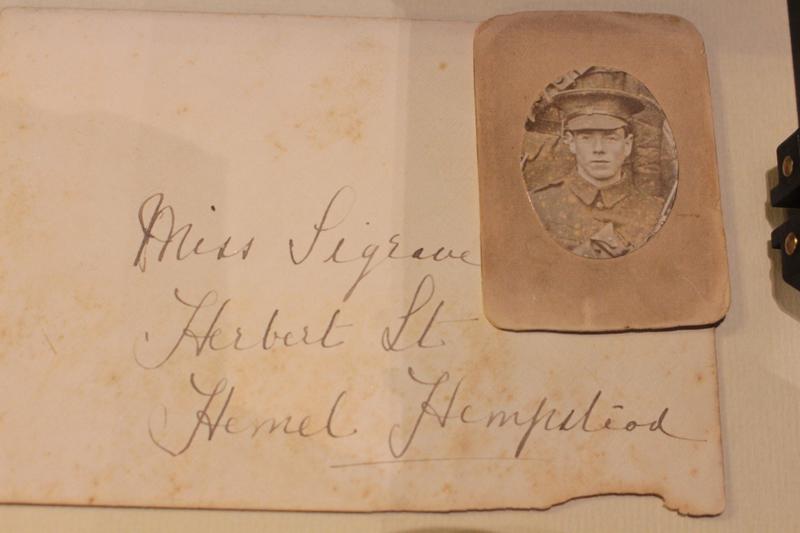 Miss Sigrave
Herbert St.
Hemel Hempstead